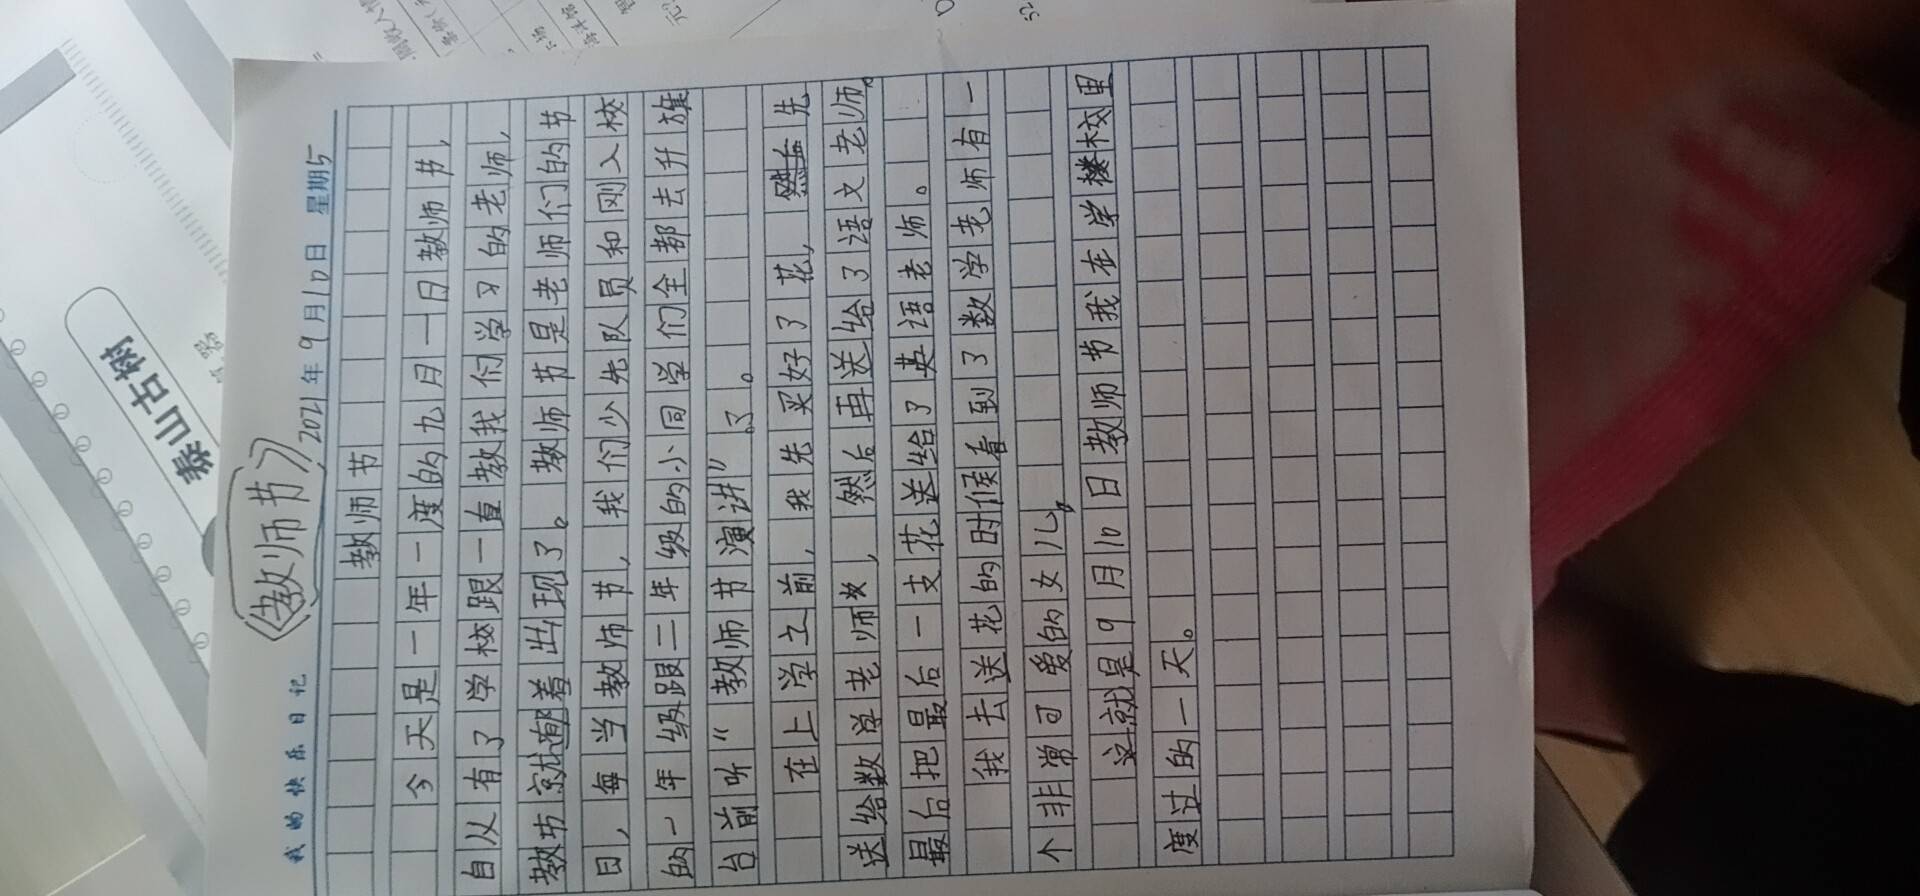 《教师节》
我的快乐日记 2021年9月10日 星期5
教师节
今天是一年一度的九月一日教师节，
自从有了学校跟一直教我们学习的老师，
教节就着出现了。教师节是老师们的节
日，每当教师节，我们少先队员和刚入校
的一年级跟二年级的小同学们全都去升旗
台前听“教师节演讲”了。
在上学之前，我先买好了花，先
送给数学老师，然后再送给了语文老师。
最后把最后一支花送给了英语老师。
我去送花的时候看到了数学老师有一
个非常可爱的女儿。
这就是9月10日教师节我在学校里
度过的一天。
泰山古树
52